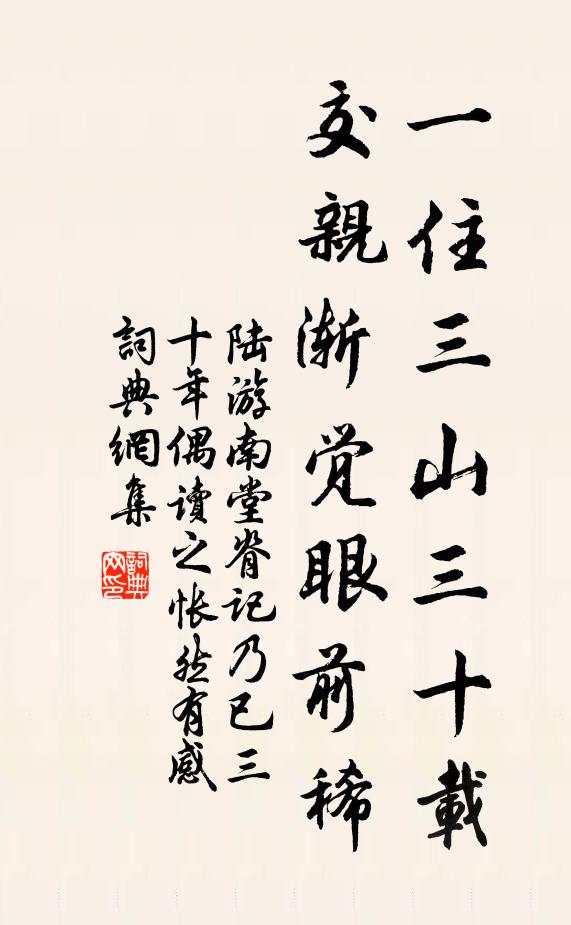 一住三山三十載
交親漸覚眼前稀
陆游南堂脊记乃已三
十年偶讀之怅然有感
詞典網集
詞典网印